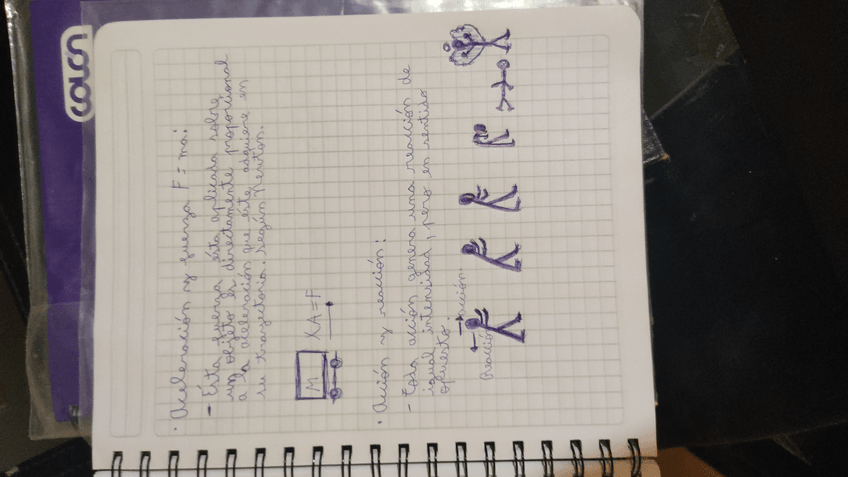 COLÓN
· Aceleración y fuerza F = ma:
- Ésta fuerza ésta aplicada sobre
un objeto es directamente proporcional
a la aceleración que éste adquiere en
su trayectoria. Según Newton.
M XA=F
· Acción y reacción:
- Toda acción genera una reacción de
igual intensidad, pero en sentido
opuesto.
Acción
Reacción